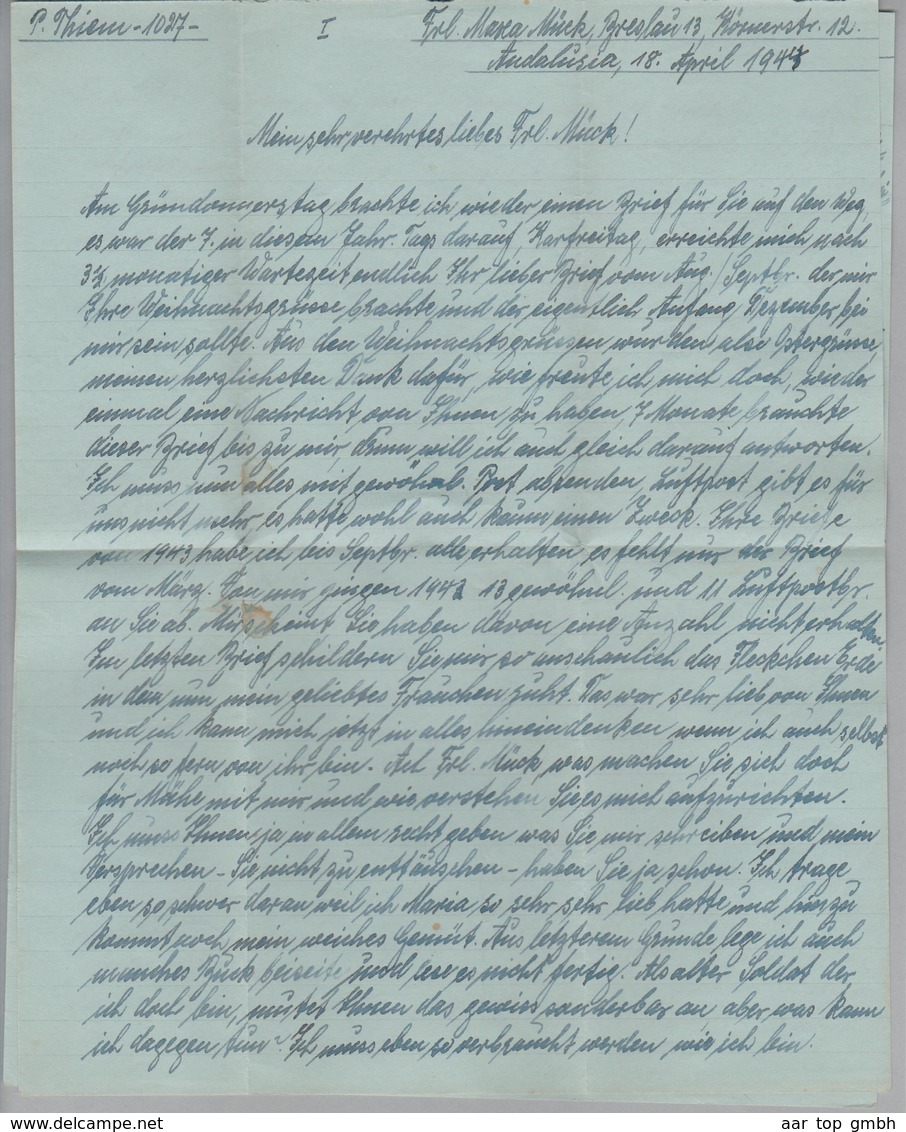 P. Thiem - 1027 -
I
Frl. Maria Mück, Breslau 13, Körnerstr. 12.
Andalusia, 18. April 1944
Mein sehr verehrtes liebes Frl. Mück!
Am Gründonnerstag brachte ich wieder einen Brief für Sie auf den Weg,
es war der 7. in diesem Jahr. Tags darauf, Karfreitag, erreichte mich nach
3½ monatiger Wartezeit endlich Ihr lieber Brief vom Aug./Septbr. der mir
Ihre Weihnachtsgrüsse brachte und der eigentlich Anfang Dezember bei
mir sein sollte. Aus den Weihnachtsgrüssen wurden also Ostergrüsse,
meinen herzlichsten Dank dafür, wie freute ich mich doch, wieder
einmal eine Nachricht von Ihnen zu haben, 7 Monate brauchte
dieser Brief bis zu mir, drum will ich auch gleich darauf antworten.
Ich muss nun alles mit gewöhnl. Post absenden, Luftpost gibt es für
uns nicht mehr, es hatte wohl auch kaum einen Zweck. Ihre Briefe
von 1943 habe ich bis Septbr. alle erhalten, es fehlt nur der Brief
vom März. Von mir gingen 1943 13 gewöhnl. und 11 Luftpostbr.
an Sie ab. Mir scheint Sie haben davon eine Anzahl nicht erhalten.
Im letzten Brief schildern Sie mir so anschaulich das Fleckchen Erde
in dem nun mein geliebtes Frauchen ruht. Das war sehr lieb von Ihnen
und ich kann mich jetzt in alles hineindenken wenn ich auch selbst
noch so fern von ihr bin. - Ach Frl. Mück, was machen Sie sich doch
für Mühe mit mir und wie verstehen Sie es mich aufzurichten.
Ich muss Ihnen ja in allem recht geben was Sie mir schreiben und mein
Versprechen - Sie nicht zu enttäuschen - haben Sie ja schon. Ich trage
eben so schwer daran weil ich Maria so sehr, sehr lieb hatte und hinzu
kommt noch mein weiches Gemüt. Aus letzterem Grunde lege ich auch
manches Buch beiseite und lese es nicht fertig. Als alter Soldat der
ich doch bin, mutet Ihnen das gewiss sonderbar an aber was kann
ich dagegen tun? Ich muss eben so verbraucht werden wie ich bin.
aar top gmbh